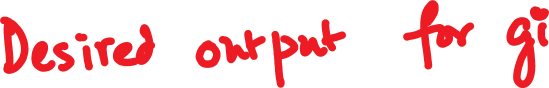 Desired output for gi